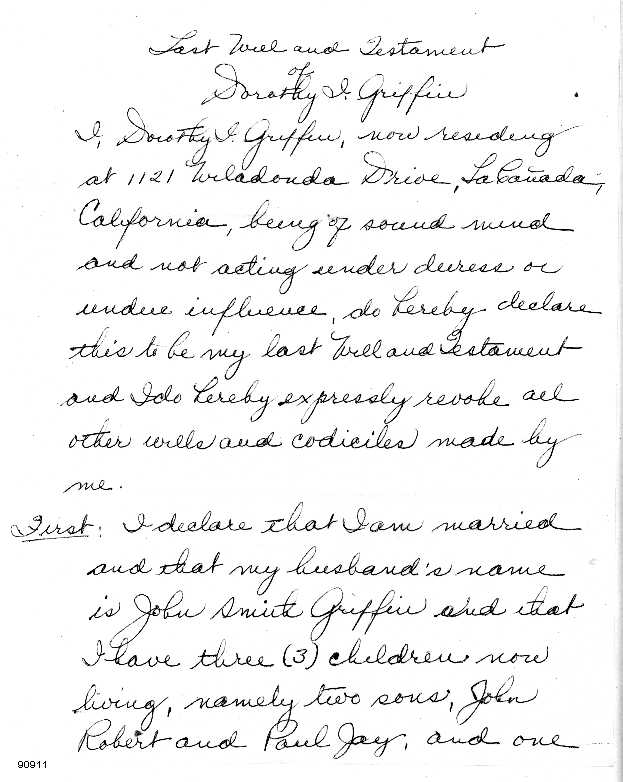 Last Will and Testament
of
Dorothy I. Griffin
I, Dorothy I. Griffin, now residing
at 1121 Wiladonda Drive, La Cañada,
California, being of sound mind
and not acting under duress or
undue influence, do hereby declare
this to be my last Will and Testament
and I do hereby expressly revoke all
other wills and codiciles made by
me.
First: I declare that I am married
and that my husband's name
is John Smith Griffin and that
I have three (3) children now
living, namely two sons, John
Robert and Paul Jay, and one
90911